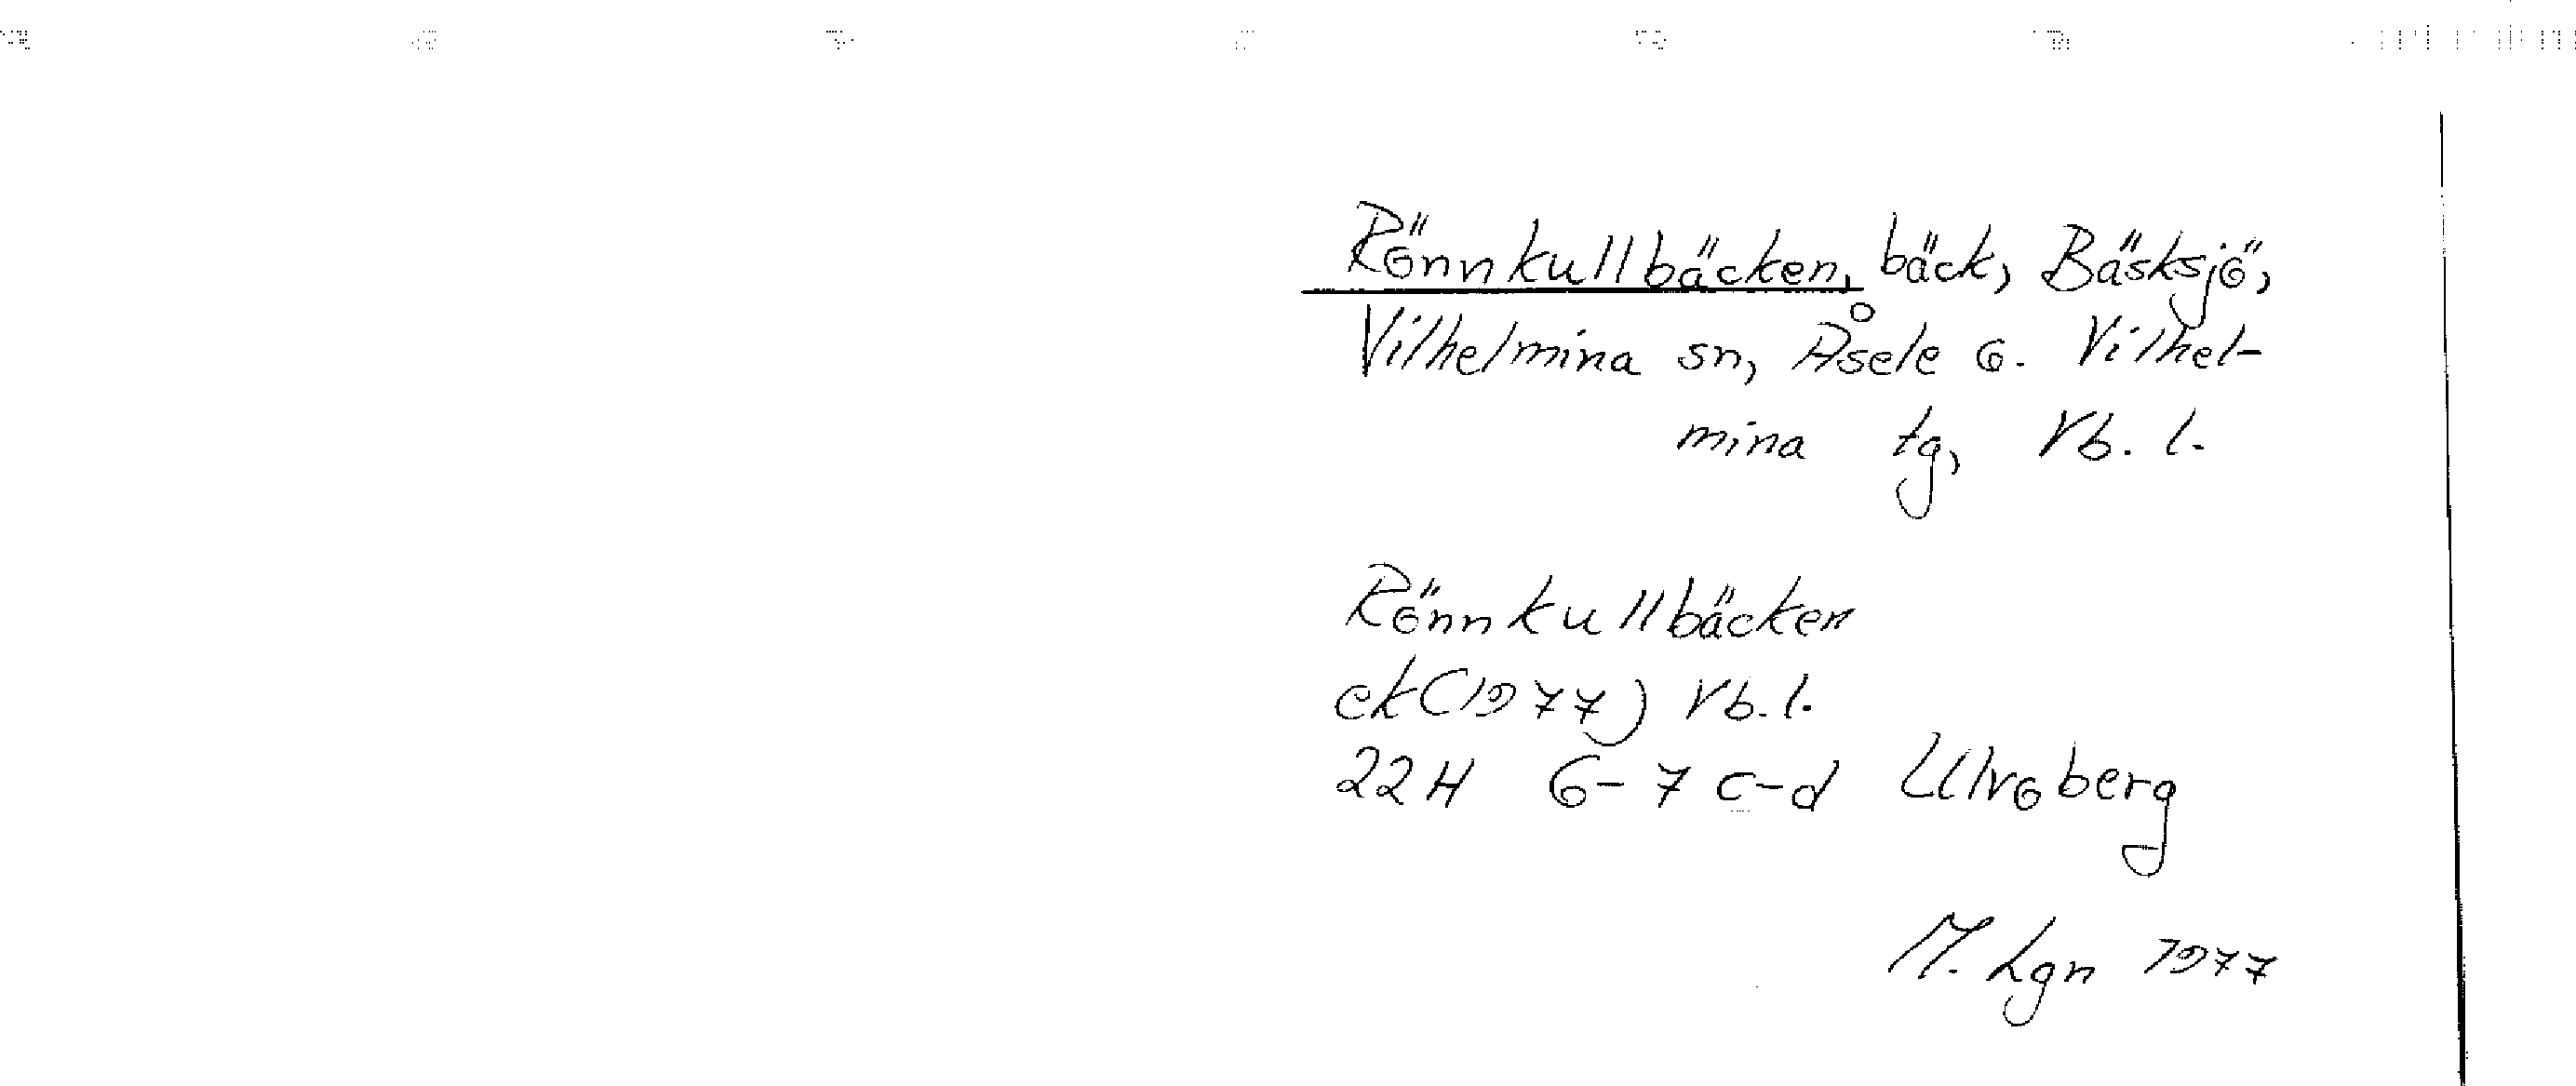 Rönnkullbäcken, bäck, Bäsksjö,
Vilhelmina sn, Åsele o. Vilhel-
mina tg, Vb. l.
Rönnkullbäcken
ek (1977) Vb. l.
22H 6-7 c-d Ulvoberg
M. Lgn 1977